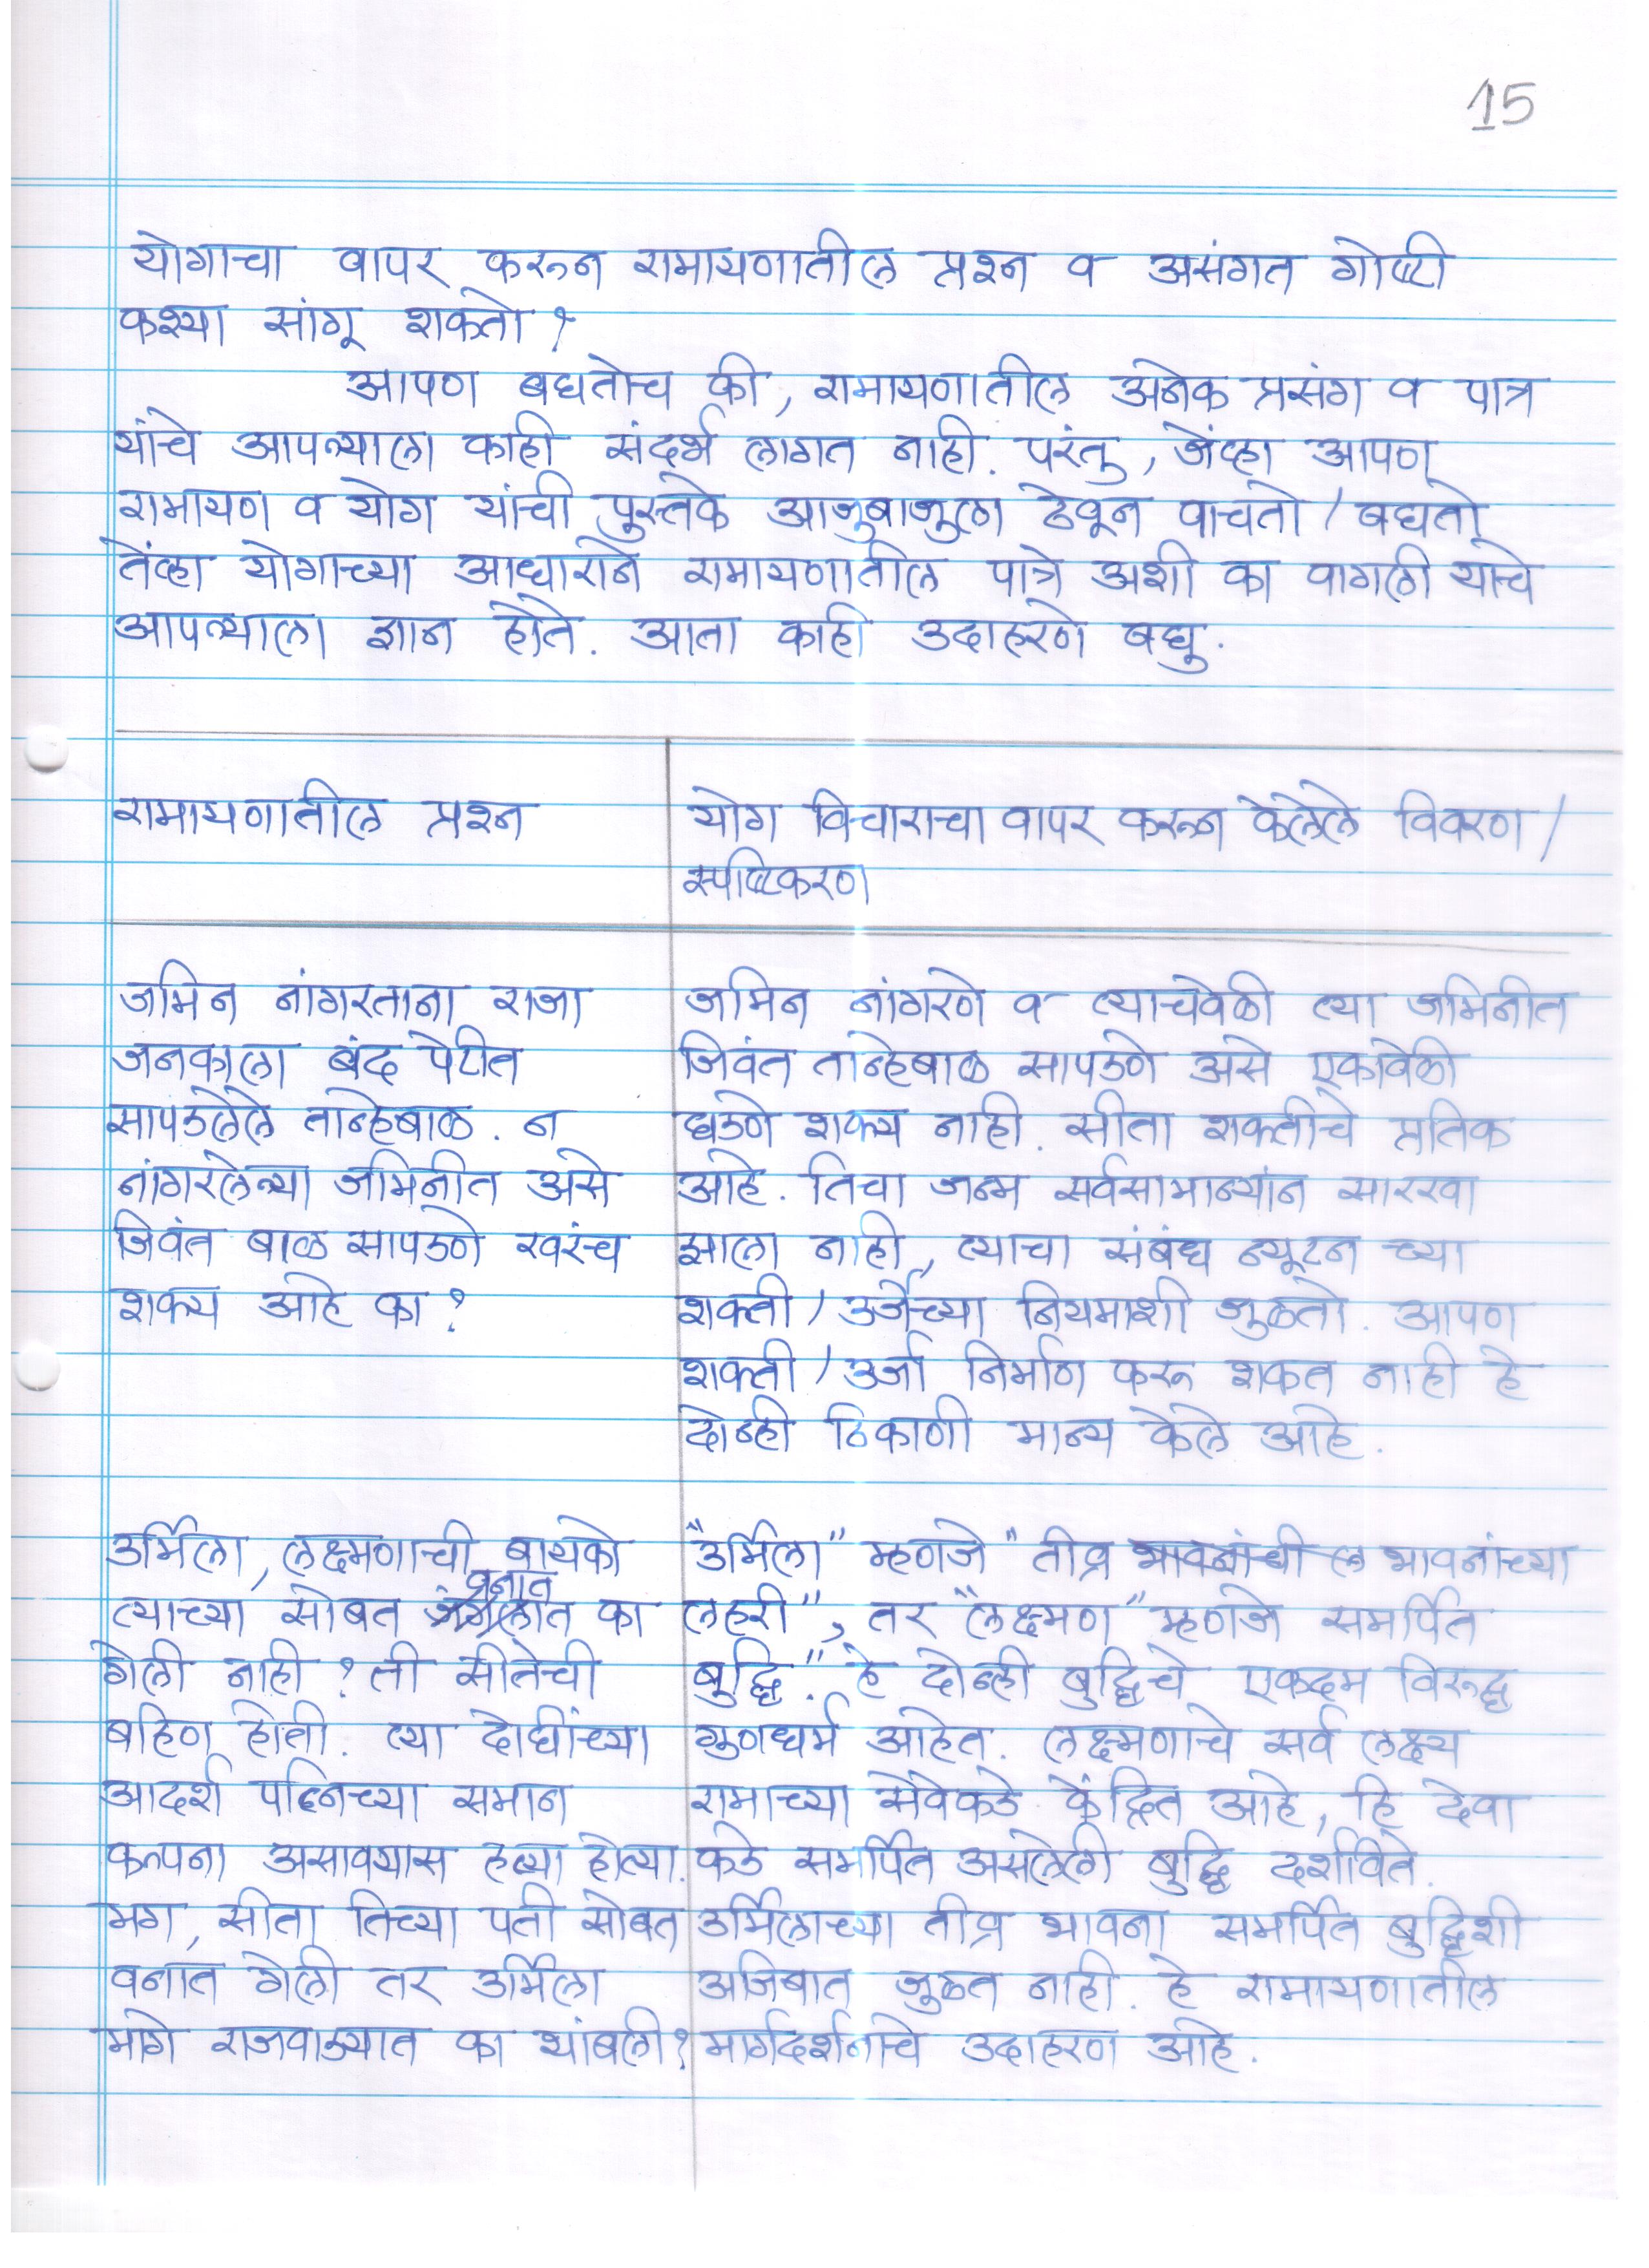 15
योगाचा वापर करून रामायणातील प्रश्न व असंगत गोष्टी
कश्या सांगू शकतो?
आपण बघतोच की, रामायणातील अनेक प्रसंग व पात्र
यांचे आपल्याला काही संदर्भ लागत नाही. परंतु, जेंव्हा आपण
रामायण व योग यांची पुस्तके आजुबाजुला ठेवून वाचतो / बघतो
तेंव्हा योगाच्या आधाराने रामायणातील पात्रे अशी का वागली याचे
आपल्याला ज्ञान होते. आता काही उदाहरणे बघु.
रामायणातील प्रश्न
योग विचाराचा वापर करून केलेले विवरण /
स्पष्टिकरण
जमिन नांगरताना राजा
जनकाला बंद पेटीत
सापडलेले तान्हेबाळ. न
नांगरलेल्या जमिनीत असे
जिवंत बाळ सापडणे खरंच
शक्य आहे का?
जमिन नांगरणे व त्याचवेळी त्या जमिनीत
जिवंत तान्हेबाळ सापडणे असे एकावेळी
घडणे शक्य नाही. सीता शक्तीचे प्रतिक
आहे. तिचा जन्म सर्वसामान्यांन सारखा
झाला नाही, त्याचा संबंध न्यूटन च्या
शक्ती / उर्जेच्या नियमाशी जुळतो. आपण
शक्ती / उर्जा निर्माण करू शकत नाही हे
दोन्ही ठिकाणी मान्य केले आहे.
उर्मिला, लक्ष्मणाची बायको
त्याच्या सोबत वनात का
गेली नाही? ती सीतेची
बहिण होती. त्या दोघींच्या
आदर्श पत्निच्या समान
कल्पना असावयास हव्या होत्या.
मग, सीता तिच्या पती सोबत
वनात गेली तर उर्मिला
मागे राजवाड्यात का थांबली?
"उर्मिला" म्हणजे "तीव्र भावनांच्या
लहरी", तर "लक्ष्मण" म्हणजे समर्पित
बुद्धि." हे दोन्ही बुद्धिचे एकदम विरूद्ध
गुणधर्म आहेत. लक्ष्मणाचे सर्व लक्ष्य
रामाच्या सेवेकडे केंद्रित आहे, हि देवा
कडे समर्पित असलेली बुद्धि दर्शविते.
उर्मिलाच्या तीव्र भावना समर्पित बुद्धिशी
अजिबात जुळत नाही. हे रामायणातील
मार्गदर्शनाचे उदाहरण आहे.